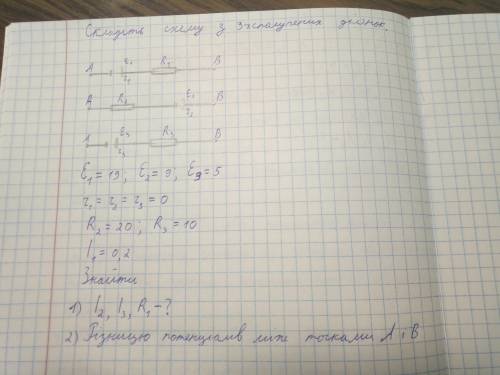 Складіть схему з 3х сполучених ділянок.
A ε₁ R₁ B
r₁
A R₂ ε₂ B
r₂
A ε₃ R₃ B
r₃
ε₁ = 19; ε₂ = 9; ε₃ = 5
r₁ = r₂ = r₃ = 0
R₂ = 20; R₃ = 10
I₁ = 0,2
Знайти
1) I₂, I₃, R₁ - ?
2) Різницю потенціалів між точками A і B